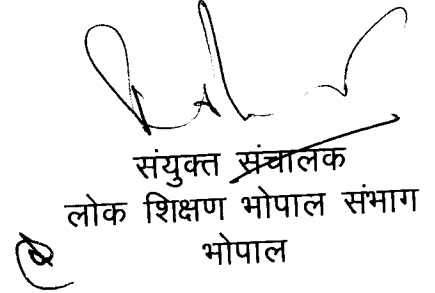 संयुक्त संचालक
लोक शिक्षण भोपाल संभाग
भोपाल